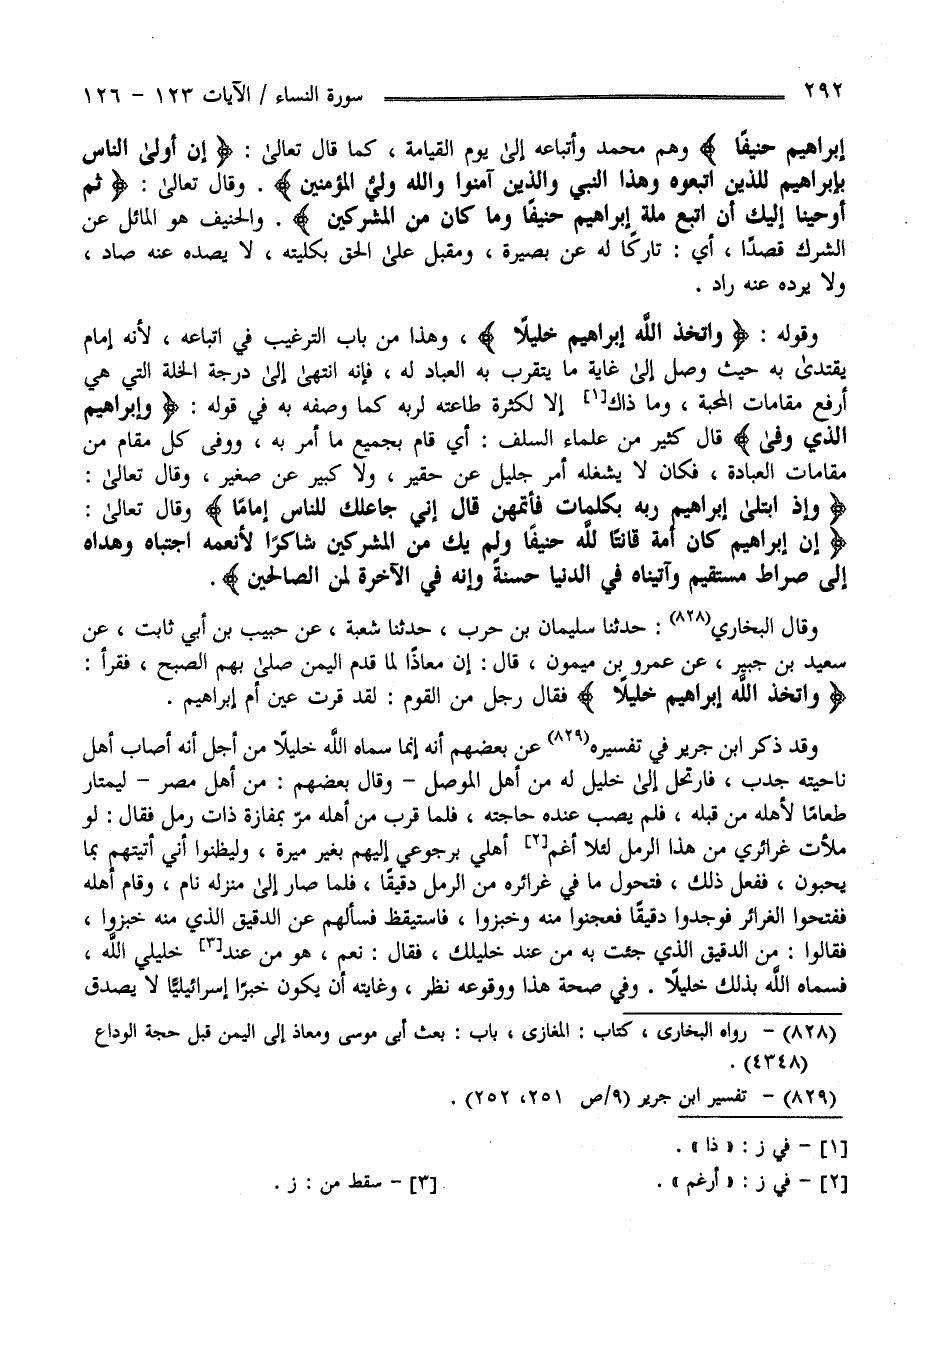 ٢٩٢ سورة النساء / الآيات ١٢٣ - ١٢٦
إبراهيم حنيفًا ﴾ وهم محمد وأتباعه إلىٰ يوم القيامة ، كما قال تعالىٰ : ﴿ إن أولىٰ الناس
بإبراهيم للذين اتبعوه وهذا النبي والذين آمنوا والله وليُّ المؤمنين ﴾ . وقال تعالىٰ : ﴿ ثم
أوحينا إليك أن اتبع ملة إبراهيم حنيفًا وما كان من المشركين ﴾ . والحنيف هو المائل عن
الشرك قصدًا ، أي : تاركًا له عن بصيرة ، ومقبل علىٰ الحق بكليته ، لا يصده عنه صاد ،
ولا يرده عنه راد .
وقوله : ﴿ واتخذ اللَّه إبراهيم خليلًا ﴾ ، وهذا من باب الترغيب في اتباعه ، لأنه إمام
يقتدىٰ به حيث وصل إلىٰ غاية ما يتقرب به العباد له ، فإنه انتهىٰ إلىٰ درجة الخلة التي هي
أرفع مقامات المحبة ، وما ذاك[١] إلا لكثرة طاعته لربه كما وصفه به في قوله : ﴿ وإبراهيم
الذي وفىٰ ﴾ قال كثير من علماء السلف : أي قام بجميع ما أمر به ، ووفى كل مقام من
مقامات العبادة ، فكان لا يشغله أمر جليل عن حقير ، ولا كبير عن صغير ، وقال تعالىٰ :
﴿ وإذ ابتلىٰ إبراهيم ربه بكلمات فأتمهن قال إني جاعلك للناس إمامًا ﴾ وقال تعالىٰ :
﴿ إن إبراهيم كان أمة قانتًا للَّه حنيفًا ولم يك من المشركين شاكرًا لأنعمه اجتباه وهداه
إلى صراط مستقيم وآتيناه في الدنيا حسنةً وإنه في الآخرة لمن الصالحين ﴾ .
وقال البخاري(٨٢٨) : حدثنا سليمان بن حرب ، حدثنا شعبة ، عن حبيب بن أبي ثابت ، عن
سعيد بن جبير ، عن عمرو بن ميمون ، قال : إن معاذًا لما قدم اليمن صلىٰ بهم الصبح ، فقرأ :
﴿ واتخذ اللَّه إبراهيم خليلًا ﴾ فقال رجل من القوم : لقد قرت عين أم إبراهيم .
وقد ذكر ابن جرير في تفسيره(٨٢٩) عن بعضهم أنه إنما سماه اللَّه خليلًا من أجل أنه أصاب أهل
ناحيته جدب ، فارتحل إلىٰ خليل له من أهل الموصل - وقال بعضهم : من أهل مصر - ليمتار
طعامًا لأهله من قبله ، فلم يصب عنده حاجته ، فلما قرب من أهله مرّ بمفازة ذات رمل فقال : لو
ملأت غرائري من هذا الرمل لئلا أغم[٢] أهلي برجوعي إليهم بغير ميرة ، وليظنوا أني أتيتهم بما
يحبون ، ففعل ذلك ، فتحول ما في غرائره من الرمل دقيقًا ، فلما صار إلىٰ منزله نام ، وقام أهله
ففتحوا الغرائر فوجدوا دقيقًا فعجنوا منه وخبزوا ، فاستيقظ فسألهم عن الدقيق الذي منه خبزوا ،
فقالوا : من الدقيق الذي جئت به من عند خليلك ، فقال : نعم ، هو من عند[٣] خليلي اللَّه ،
فسماه اللَّه بذلك خليلًا . وفي صحة هذا ووقوعه نظر ، وغايته أن يكون خبرًا إسرائيليًّا لا يصدق
(٨٢٨) - رواه البخارى ، كتاب : المغازى ، باب : بعث أبى موسى ومعاذ إلى اليمن قبل حجة الوداع
(٤٣٤٨) .
(٨٢٩) - تفسير ابن جرير (٩/ص ٢٥١، ٢٥٢) .
[١] - في ز : « ذا » .
[٢] - في ز : « أرغم » . [٣] - سقط من : ز .